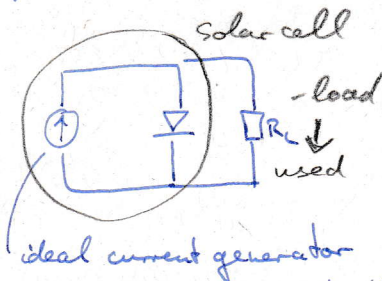 solar cell
- load
R_L
used
ideal current generator